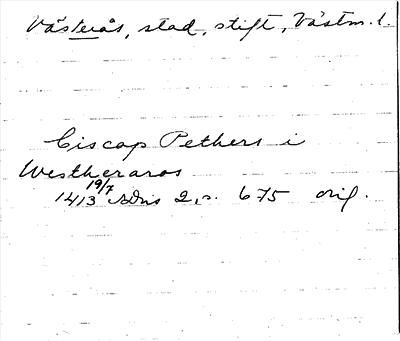 Västerås, stad, stift, Västm. l.
biscop Pethers i
Westheraros
1413 19/7 SDns 2, s. 675 orig.